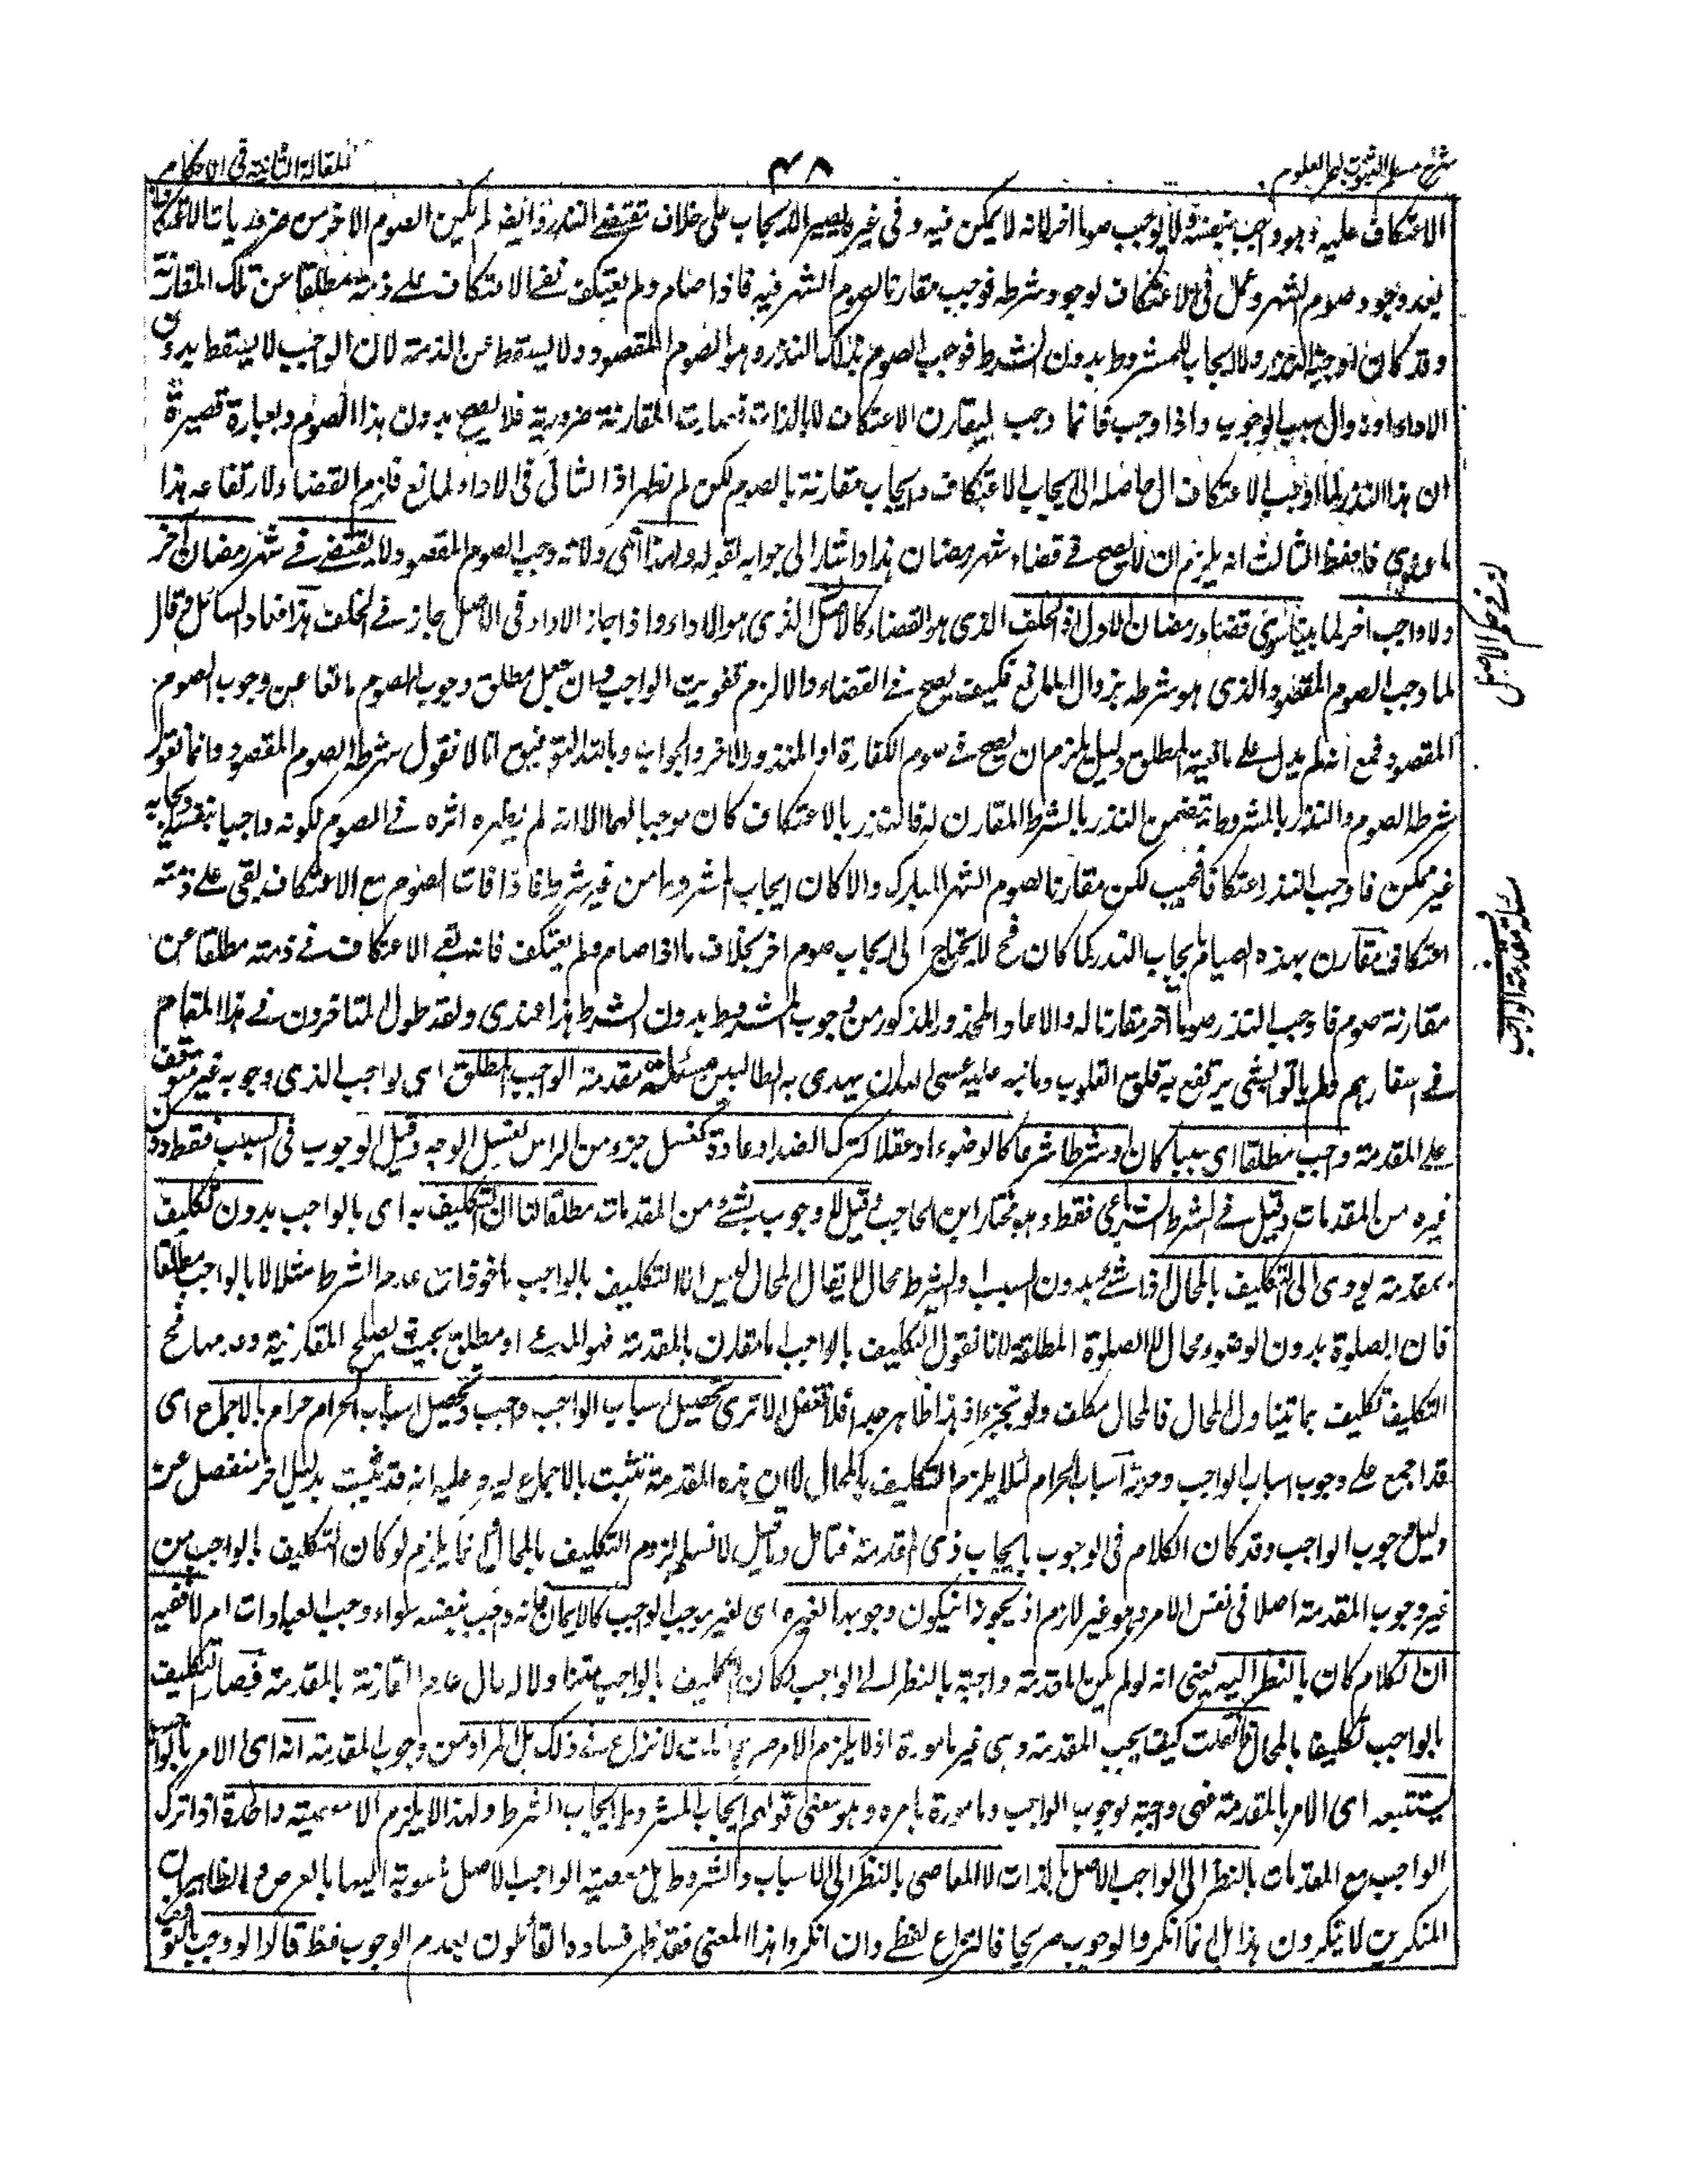 شرح مسلم الثبوت لبحر العلوم
٤٨
المقالة الثانية فى الاحكام
الاعتكاف عليه وهو واجب بنفسه ولا يوجب صوما اخر لانه لا يمكن فيه وفى غيره يصير الايجاب على خلاف مقتضى النذر وايضا لم يكن الصوم الاخر من ضروريات الاعتكاف
بعد وجود صوم الشهر وعمل فى الاعتكاف لوجود شرطه فوجب مقارنا لصوم الشهر فيه فاذا صام ولم يعتكف بقى الاعتكاف على ذمته مطلقا عن تلك المقارنة
وقد كان اوجبه النذر ولا ايجاب للمشروط بدون الشرط فوجب الصوم بذلك النذر وهو الصوم المقصود ولا يسقط عن الذمة لان الواجب لا يسقط بدون
الاداء او زوال سبب الوجوب واذا وجب فانما وجب ليقارن الاعتكاف لا بالذات فصارت المقارنة ضرورية فلا يصح بدون هذا الصوم وبعبارة قصيرة
ان هذا النذر لما اوجب الاعتكاف ال حاصله الى ايجاب الاعتكاف وايجاب مقارنة بالصوم لكن لم يظهر اذا الثانى فى الاداء لمانع فلزم القضاء ولارتفاعه هذا
ما عندى فاحفظ الثالث انه يلزم ان لا يصح فى قضاء شهر رمضان هذا واشار الى جوابه بقوله ولهذا اى ولانه وجب الصوم المقصود ولا يقتضى فى شهر رمضان اخر
ولا واجب اخر لما بينا سوى قضاء رمضان الاول اذ الخلف الذى هو القضاء كالاصل الذى هو الاداء واذا جاز الاداء فى الاصل جاز فى الخلف هذا فعاد السائل وقال
لما وجب الصوم المقصود الذى هو شرطه بزوال المانع فكيف يصح فى القضاء والا لزم تفويت الواجب وان جعل مطلق وجوب الصوم مانعا عن وجوب الصوم
المقصود فمع انه لم يدل على مانعية المطلق دليل يلزم ان يصح فى صوم الكفارة او المنذور الاخر والجواب وبالله التوفيق انا لا نقول شرطه الصوم المقصود وانما نقول
شرطه الصوم والنذر بالمشروط يتضمن النذر بالشرط المقارن له فالنذر بالاعتكاف كان موجبا لهما الا انه لم يظهر اثره فى الصوم لكونه واجبا بنفسه وايجابه
غير ممكن فاوجب النذر اعتكافا فحسب لكن مقارنا لصوم الشهر المبارك والا كان ايجاب المشروط من غير شرط فاذا فات الصوم مع الاعتكاف بقى على ذمته
اعتكاف مقارن بهذه الصيام بايجاب النذر كما كان فح لا يحتاج الى ايجاب صوم اخر بخلاف ما اذا صام ولم يعتكف فانه بقى الاعتكاف فى ذمته مطلقا عن
مقارنة صوم فاوجب النذر صوما اخر مقارنا له والا عاد المحذور المذكور من وجوب المشروط بدون الشرط هذا عندى ولقد طول المتاخرون فى هذا المقام
فى اسفارهم ولم ياتوا بشئ يرتفع به قلق القلوب وما نبه عليه عسى الله ان يهدى به الطالبين مسئلة مقدمة الواجب المطلق اى الواجب الذى وجوبه غير متوقف
على المقدمة واجب مطلقا اى سببا كان او شرطا شرعا كالوضوء او عقلا كترك الضد او عادة كغسل جزء من الراس لغسل الوجه وقيل الوجوب فى السبب فقط دون
غيره من المقدمات وقيل فى الشرط الشرعى فقط وهو مختار ابن الحاجب وقيل لا وجوب بشئ من المقدمات مطلقا لنا ان التكليف به اى بالواجب بدون تكليف
بمقدمته يؤدى الى التكليف بالمحال اذ الشئ بدون السبب والشرط محال لا يقال المحال بعين انما التكليف بالواجب ماخوذا مع عدم الشرط مثلا لا بالواجب مطلقا
فان الصلوة بدون الوضوء محال لا الصلوة المطلقة لانا نقول التكليف بالواجب اما مقارن بالمقدمة فهو المدعى او مطلق بحيث يصلح المقارنة ودونها فح
التكليف تكليف بما يتناول المحال فالمحال مكلف ولو تجويزا وهذا ظاهر جدا فلا تغفل الا ترى تحصيل اسباب الواجب واجب وتحصيل اسباب الحرام حرام بالاجماع اى
قد اجمع على وجوب اسباب الواجب وحرمة اسباب الحرام لئلا يلزم التكليف بالمحال لا ان هذه المقدمة تثبت بالاجماع ليرد عليه انه قد يثبت بدليل اخر منفصل عن
دليل وجوب الواجب وقد كان الكلام فى الوجوب بايجاب ذى المقدمة فتامل وقيل لا نسلم لزوم التكليف بالمحال انما يلزم لو كان التكليف بالواجب من
غير وجوب المقدمة اصلا فى نفس الامر وهو غير لازم اذ يجوز ان يكون وجوبها لغيره اى لغير موجب الواجب كالايمان فانه وجب بنفسه سواء وجب العبادات ام لا ففيه
ان الكلام كان بالنظر اليه يعنى انه لو لم يكن المقدمة واجبة بالنظر الى الواجب لكان التكليف بالواجب متناولا لحال عدم المقارنة بالمقدمة فيصار التكليف
بالواجب تكليفا بالمحال فان قلت كيف يجب المقدمة وهى غير مامورة اذ لا يلزم الامر صريحا قلت لا نزاع فى ذلك بل المراد من وجوب المقدمة انه اى الامر بالواجب
يستتبعه اى الامر بالمقدمة فهى واجبة لوجوب الواجب ومامورة بامره وهو معنى قولهم ايجاب المشروط ايجاب الشرط ولهذا لا يلزم الا معصية واحدة اذا ترك
الواجب مع المقدمات بالنظر الى الواجب الاصل بالذات لا المعاصى بالنظر الى الاسباب والشروط بل معصية الواجب الاصل منسوبة اليها بالعرض والظاهر ان
المنكرين لا ينكرون هذا بل انما انكروا الوجوب صريحا فالنزاع لفظى وان انكروا هذا المعنى فقد ظهر فساده القائلون بعدم الوجوب فقط قالوا لو وجب لتوقف
مسئلة مقدمة الواجب